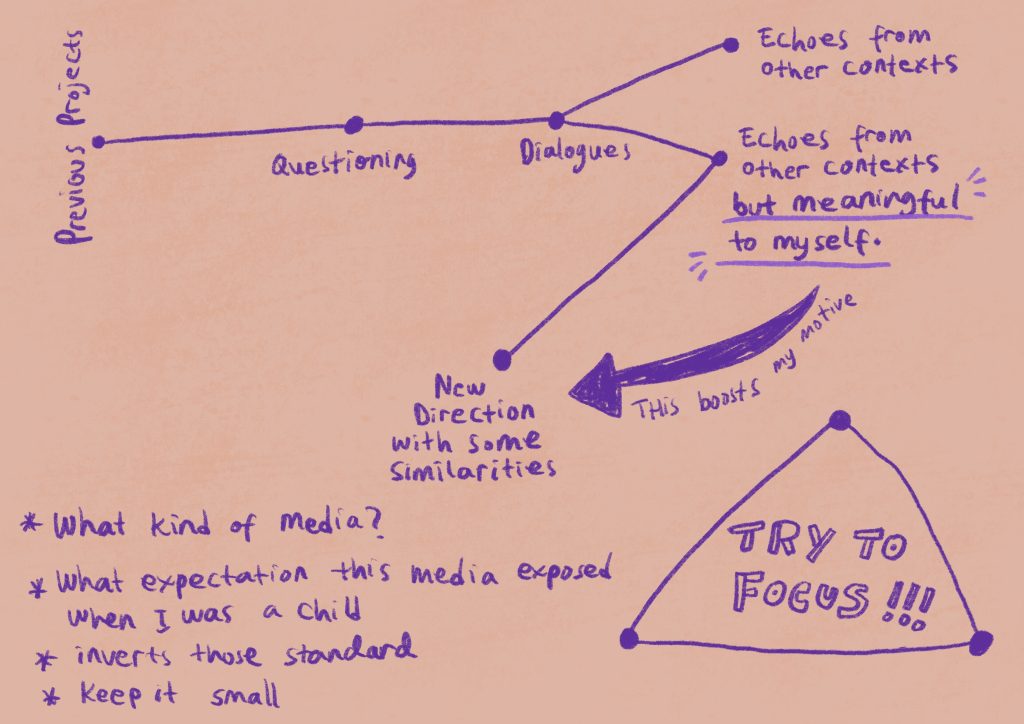 Previous Projects
Questioning
Dialogues
Echoes from
other contexts
Echoes from
other contexts
but meaningful
to myself.
This boosts my motive
New
Direction
with some
similarities
* What kind of media?
* What expectation this media exposed
when I was a child
* inverts those standard
* keep it small
TRY TO
FOCUS!!!